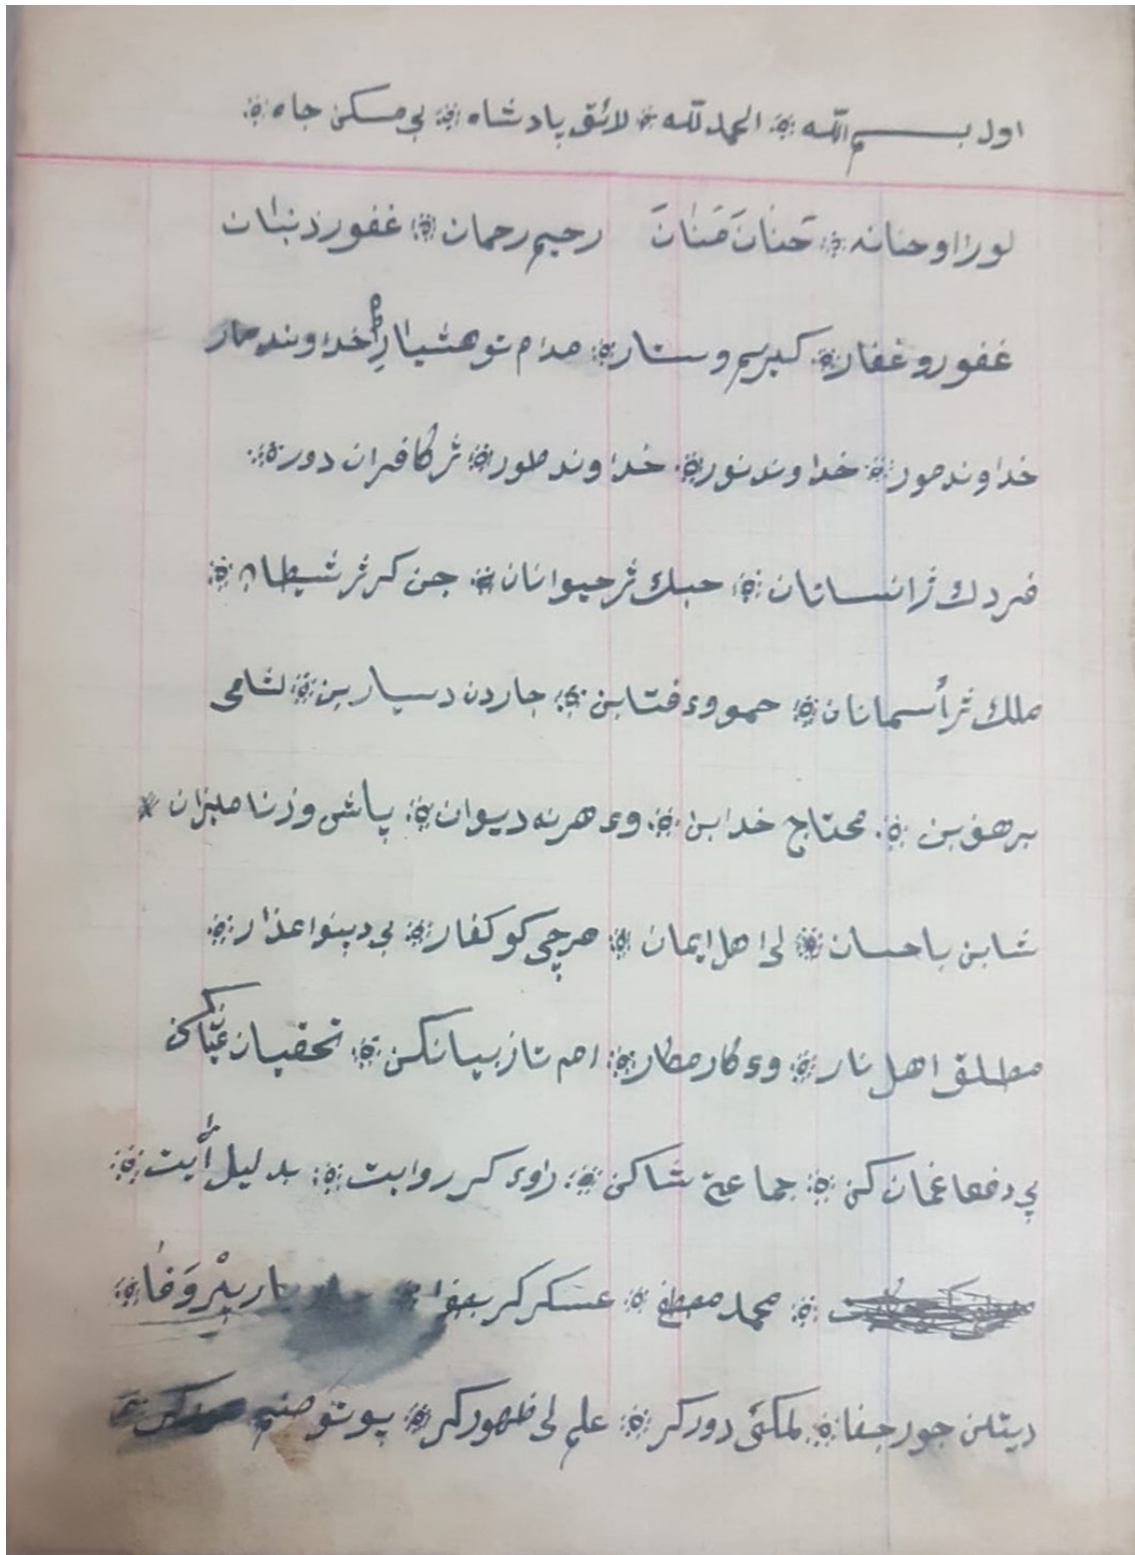 اول بسم الله ۞ الحمد لله ۞ لائق پادشاه ۞ بی مسکن جاه ۞
لورا و حنانه ۞ حَنانَ مَنانَ رحیم رحمان ۞ غفور ذنبان
غفور و غفار ۞ کریم و ستار ۞ مدام تو هشیار خداوند مار
خداوند مور ۞ خداوند نور ۞ خداوند طور ۞ ژ کافران دور ۞
فردك ژ انسانان ۞ حبك ژ حیوانان ۞ جن کر ژ شیطان ۞
ملك ژ أسمانان ۞ حمو وء فنابن ۞ جاردن دسیار بن ۞ لشامی
برهف بن ۞ محتاج خدا بن ۞ وء هرنه دیوان ۞ پاش وزنا میزان
شابن باحسان ۞ لی اهل ایمان ۞ هرچی کو کفار ۞ بی دبنوا عذار ۞
مطلق اهل نار ۞ وء کار مطار ۞ ام تاز بیان کن ۞ تحقیان کن
پی دفعا غمان کن ۞ جماعتی شا کن ۞ راوء کر روایت ۞ بدلیل أیت ۞
۞ محمد مصطفی ۞ عسکر کر یار پیْروَفا ۞
دیتن جور جفا ۞ دور کر ۞ علم لی ظهور کر ۞ پوتو صنم